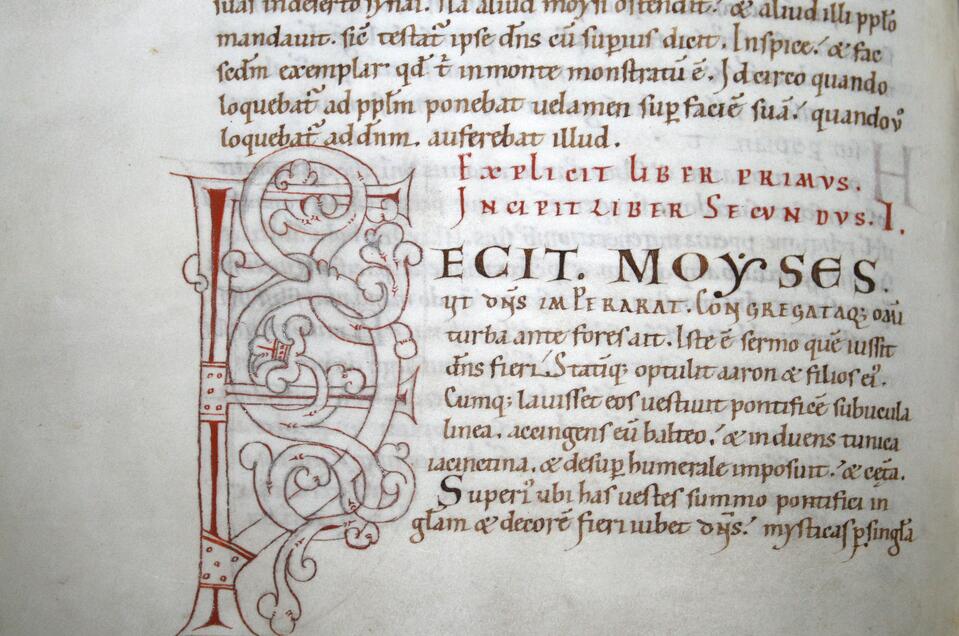 suai indeserto synai. Na aliud moysi ostendit. & aliud illi pplo
mandauit. sic̄ testat̄ ipse dn̄s cū superius dicit. Inspice. & fac
secdm̄ exemplar qd̄ t̄ inmonte monstratū ē. Idcirco quando
loquebat̄ ad pplm̄ ponebat uelamen sup̱ faciē suā. quandoū
loquebat̄ addn̄m. auferebat illud.
EXPLICIT LIBER PRIMVS.
INCIPIT LIBER SECVNDVS. I.
FECIT. MOYSES.
VT dn̄s IMPERARAT. CONGREGATAQ; omī
turba ante fores ait. Iste ē sermo quē iussit
dn̄s fieri. Statiq; optulit aaron & filios ei᾿.
Cumq; lauisset eos uestiuit pontificē subucula
linea. accingens eū balteo. & induens tunica
iacinctina. & desup̱ humerale imposuit. & cet̄a.
Superi᾿ ubi has uestes summo pontifici in
gl̄am & decorē fieri iubet dn̄s. mysticas p̱ singl̄a